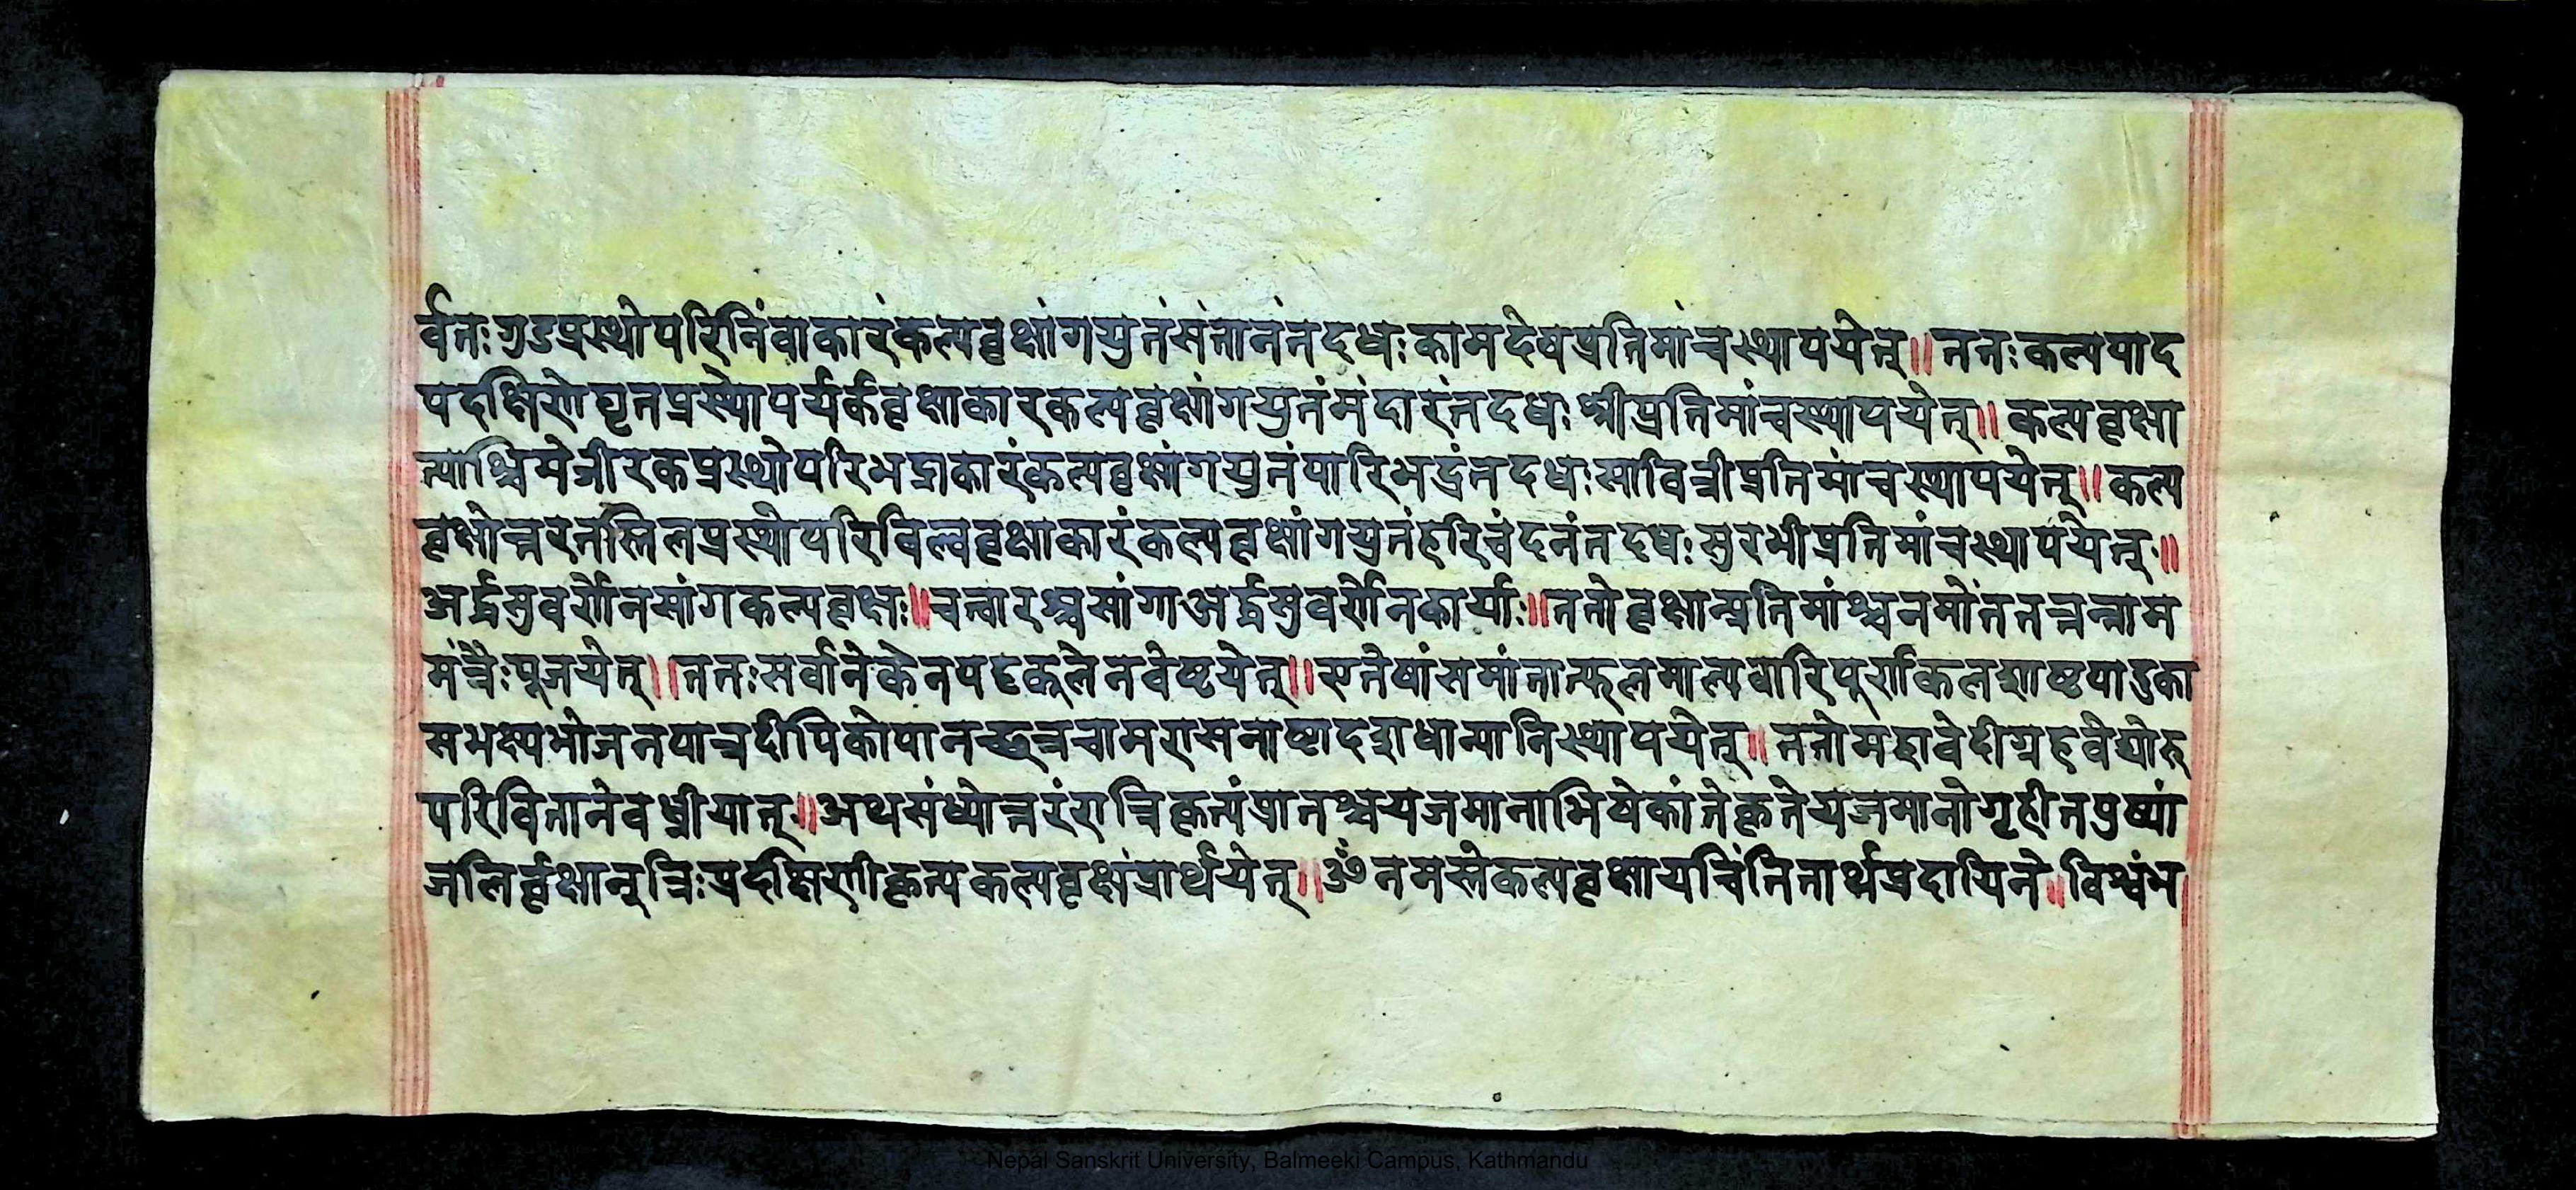 र्वतः गुडप्रस्थोपरिनिंवाकारंकल्पवृक्षांगयुतंसंतानंतदधः कामदेवप्रतिमांचस्थापयेत्॥ ततः कल्पपाद
पदक्षिणेघृतप्रस्थोपर्यर्कवृक्षाकारकल्पवृक्षांगयुतंमंदारंतदधः श्रीप्रतिमांचस्थापयेत्॥ कल्पवृक्षा
त्पश्चिमेजीरकप्रस्थोपरिभद्राकारंकल्पवृक्षांगयुतंपारिभद्रंतदधः सावित्रीप्रतिमांचस्थापयेत्॥ कल्प
वृक्षोत्तरतस्तिलप्रस्थोपरिविल्ववृक्षाकारंकल्पवृक्षांगयुतंहरिचंदनंतदधः सुरभीप्रतिमांचस्थापयेत्॥
अर्द्धसुवर्णेनसांगकल्पवृक्षः॥ चत्वारश्चसांगाअर्द्धसुवर्णेनकार्याः॥ ततोवृक्षान्प्रतिमांश्चनमोंततत्तन्नाम
मंत्रैः पूजयेत्॥ ततः सर्वानेकेनपट्टकूलेनवेष्टयेत्॥ एतेषांसमांतात्फलमाल्यवारिपूर्णकलशाष्टपादुका
सभक्ष्यभोजनपात्रदीपिकोपानच्छत्रचामरासनाष्टादशधान्यानिस्थापयेत्॥ ततोमहावेदीग्रहवेद्योरु
परिवितानेवध्नीयात्॥ अथसंध्योत्तरंरात्रिकृत्यंप्रातश्चयजमानाभिषेकांतेकृतेयजमानोगृहीतपुष्पां
जलिर्वृक्षानूत्रिः प्रदक्षिणीकृत्यकल्पवृक्षंप्रार्थयेत्॥ ॐ नमस्तेकल्पवृक्षायचिंतितार्थप्रदायिने॥ विश्वंभ
Nepal Sanskrit University, Balmeeki Campus, Kathmandu